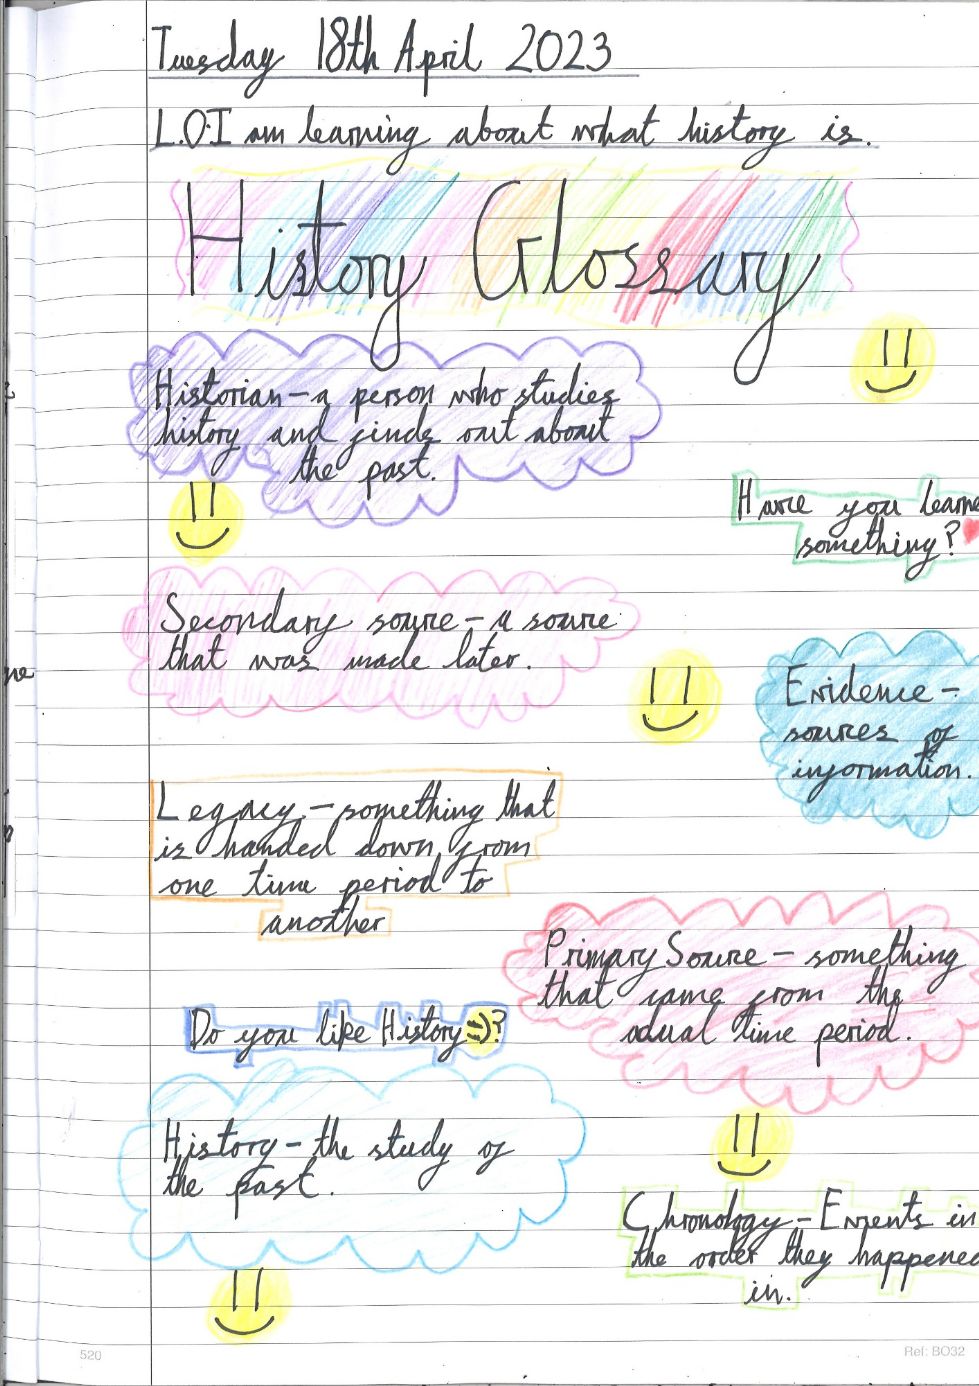 Tuesday 18th April 2023
L.O.I am learning about what history is.
History Glossary
Historian - a person who studies
history and finds out about
the past.
Have you learne
something?
Secondary source - a source
that was made later.
Evidence -
sources of
information.
Legacy - something that
is handed down from
one time period to
another
Primary Source - something
that came from the
actual time period.
Do you like History =)?
History - the study of
the past.
Chronology - Events in
the order they happened
in.
520
Ref: BO32